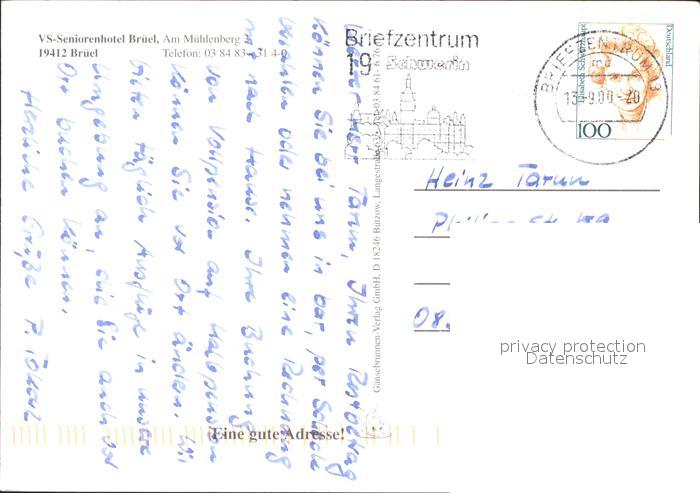 VS-Seniorenhotel Brüel, Am Mühlenberg
19412 Brüel Telefon: 03 84 83 - 31 4-0
Briefzentrum
19
Schwerin
BRIEFZENTRUM
13.-9.00-20
100
Elisabeth Schwarzhaupt
Deutschland
Herr Tarun, Ihren Restbetrag
können Sie bei uns in bar, per Scheck
bezahlen oder nehmen eine Rechnung
mit nach Hause. Ihre Buchung
von Vollpension auf Halbpension
können Sie vor Ort ändern. Wir
bieten täglich Ausflüge in unsere
Umgebung an, die Sie auch vor
Ort buchen können.
Herzliche Grüße P.
Heinz Tarun
08.
Gänsebrunnen-Verlag GmbH, D 18246 Bützow, Langestraße
Eine gute Adresse!
privacy protection
Datenschutz